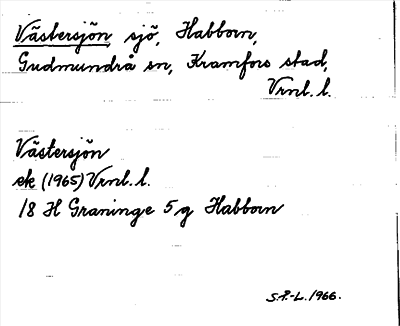 Västersjön, sjö, Habborn,
Gudmundrå sn, Kramfors stad,
Vrnl. l.
Västersjön
ek (1965) Vrnl. l.
18 H Graninge 5 g Habborn
S.P.-L. 1966.